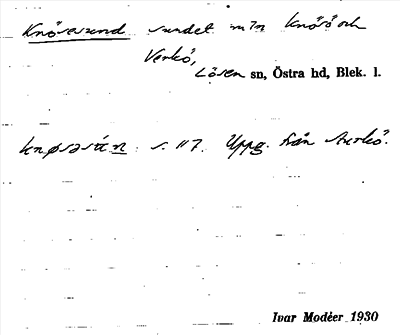 Knösesund sundet m/n Knösö och
Verkö,
Lösen sn, Östra hd, Blek. l.
s. 117. Uppg. från Sturkö.
Ivar Modéer 1930